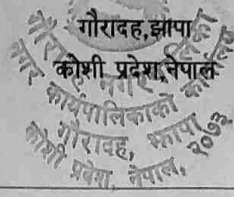 गौरादह,झापा
कोशी प्रदेश,नेपाल
गौरादह नगरपालिका
नगर कार्यपालिकाको कार्यालय
गौरादह, झापा
कोशी प्रदेश, नेपाल, २०७३